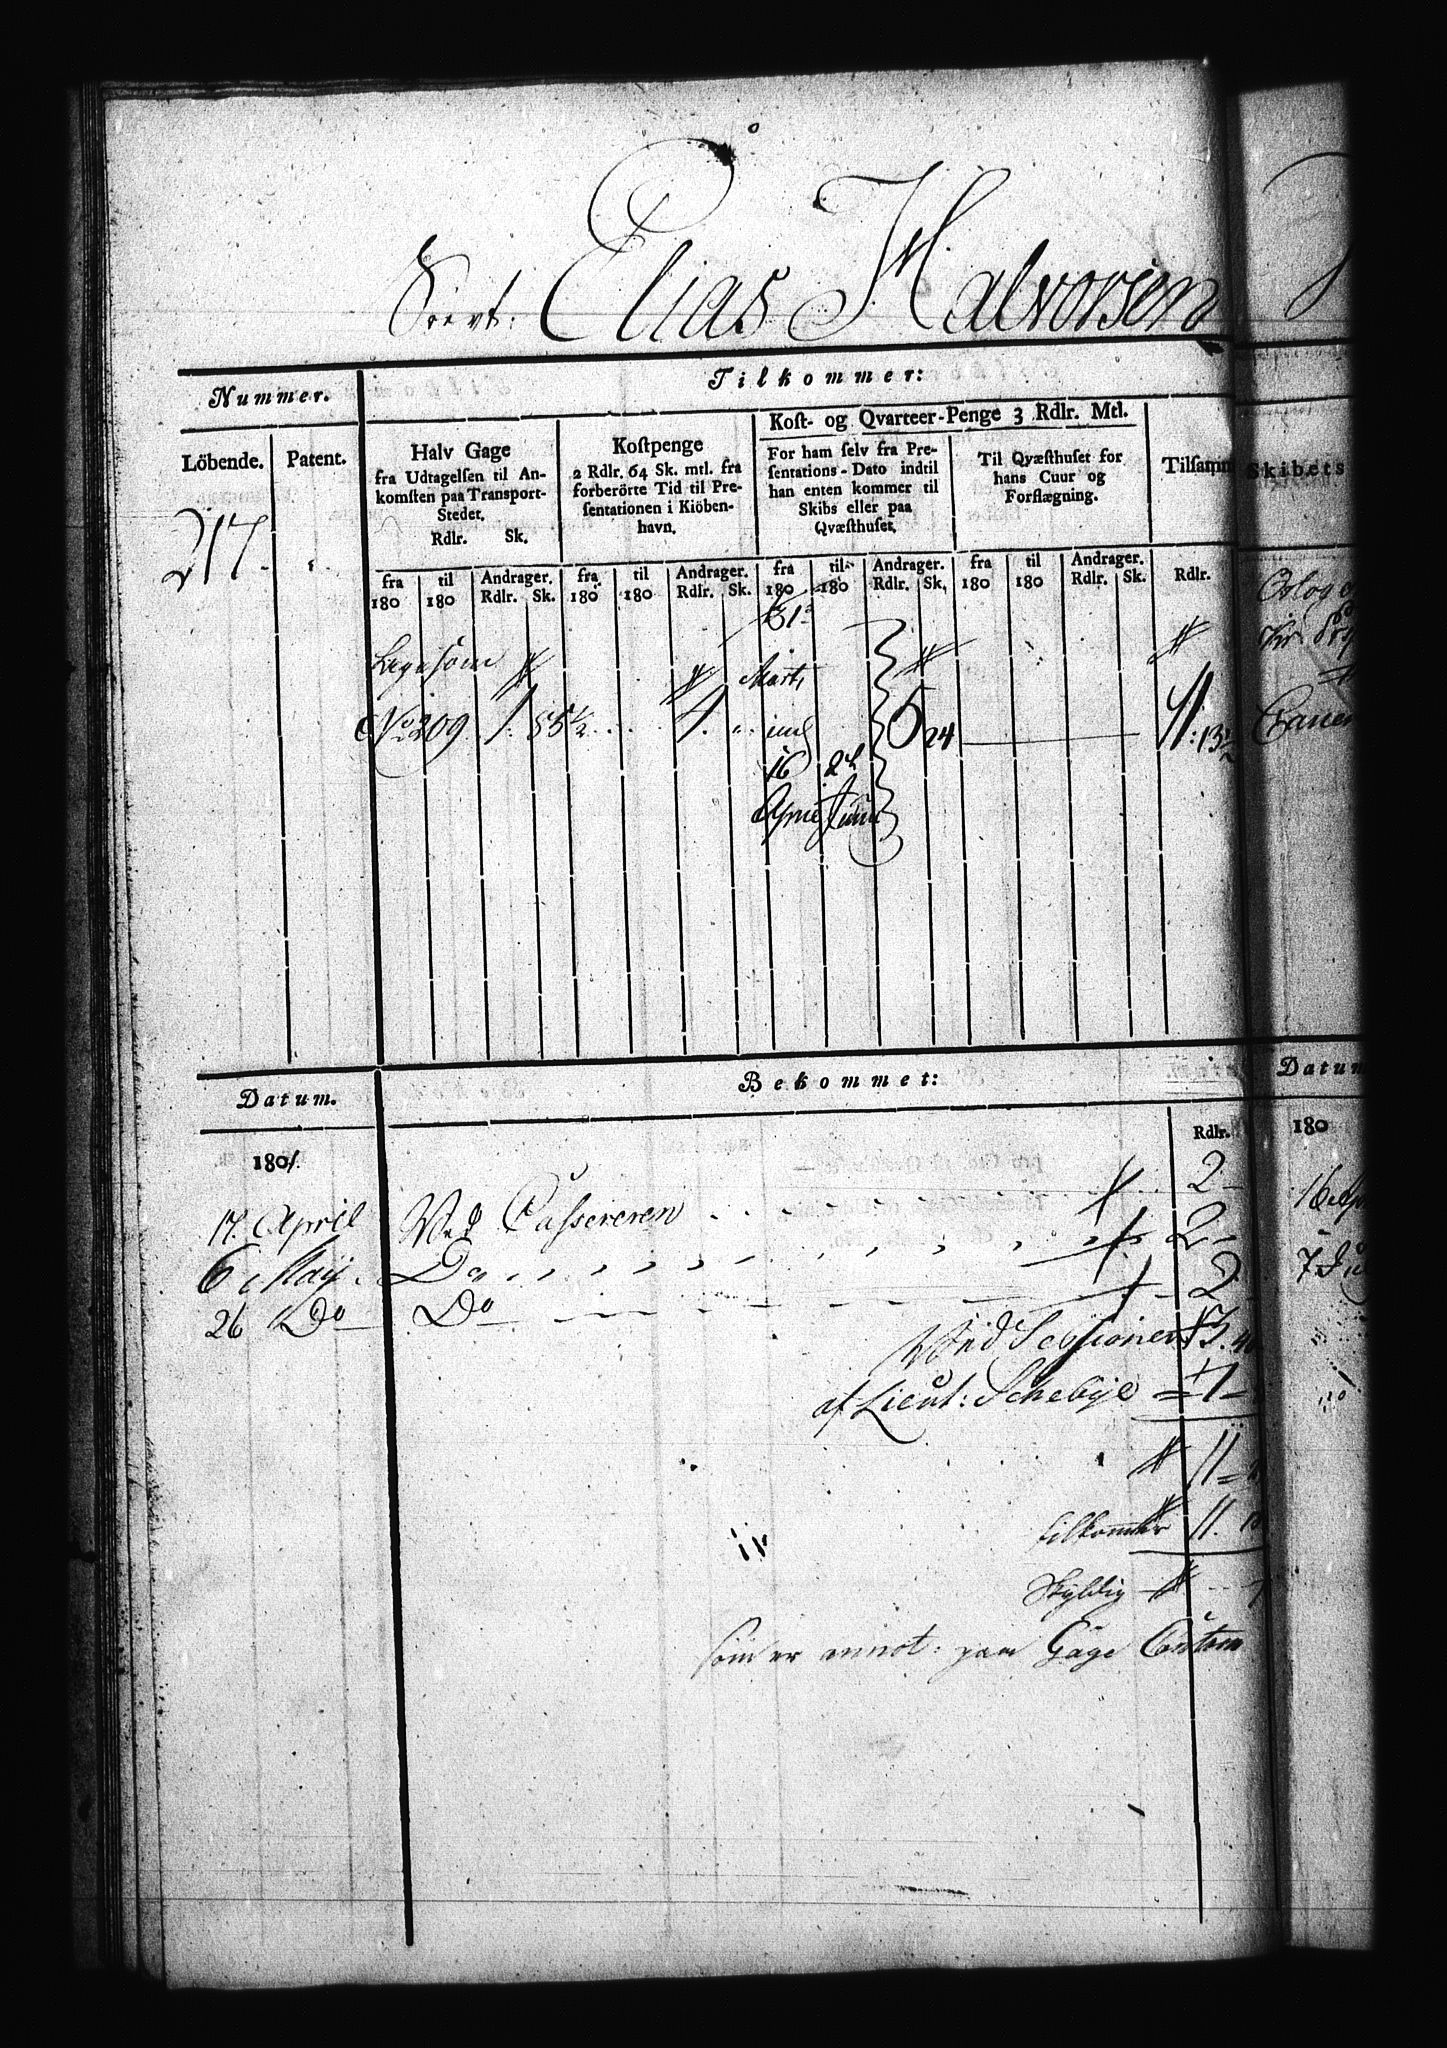 Elias Halvorsen
Nummer.
Tilkommer:
Löbende.
Patent.
Halv Gage
fra Udtagelsen til An-
komsten paa Transport-
Stedet.
Rdlr. Sk.
Kostpenge
2 Rdlr. 64 Sk. mtl. fra
forberörte Tid til Pre-
sentationen i Kiöben-
havn.
Kost- og Qvarteer-Penge 3 Rdlr. Mtl.
For ham selv fra Pre-
sentations-Dato indtil
han enten kommer til
Skibs eller paa
Qvæsthuset.
Til Qvæsthuset for
hans Cuur og
Forflægning.
Tilsamm
Skibets
217.
fra til Andrager. fra til Andrager. fra til Andrager. fra til Andrager.
180 180 Rdlr. Sk. 180 180 Rdlr. Sk. 180 180 Rdlr. Sk. 180 180 Rdlr. Sk. Rdlr.
31
Ligesom Marts
No 209 1. 85½ 4. " 5 24 11: 13
16 2d
April Juni
Datum.
Bekommet:
Datum
1801.
Rdlr.
180
17. April Ved Cassereren 2
16 Apr
6 May Do 2
7 Ju
26 Do Do 2
Ved Sessionen 3. 4
af Lieut: Schebye 1
11
tilkommer 11. 1
Skyldig
som er annot: paa Gage Contoen